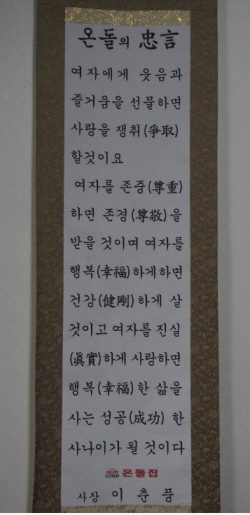 온돌의 忠言
여자에게 웃음과
즐거움을 선물하면
사랑을 쟁취(爭取)
할것이요
여자를 존중(尊重)
하면 존경(尊敬)을
받을 것이며 여자를
행복(幸福)하게하면
건강(健剛)하게 살
것이고 여자를 진실
(眞實)하게 사랑하면
행복(幸福)한 삶을
사는 성공(成功) 한
사나이가 될 것이다
온돌집
사장 이 춘 풍